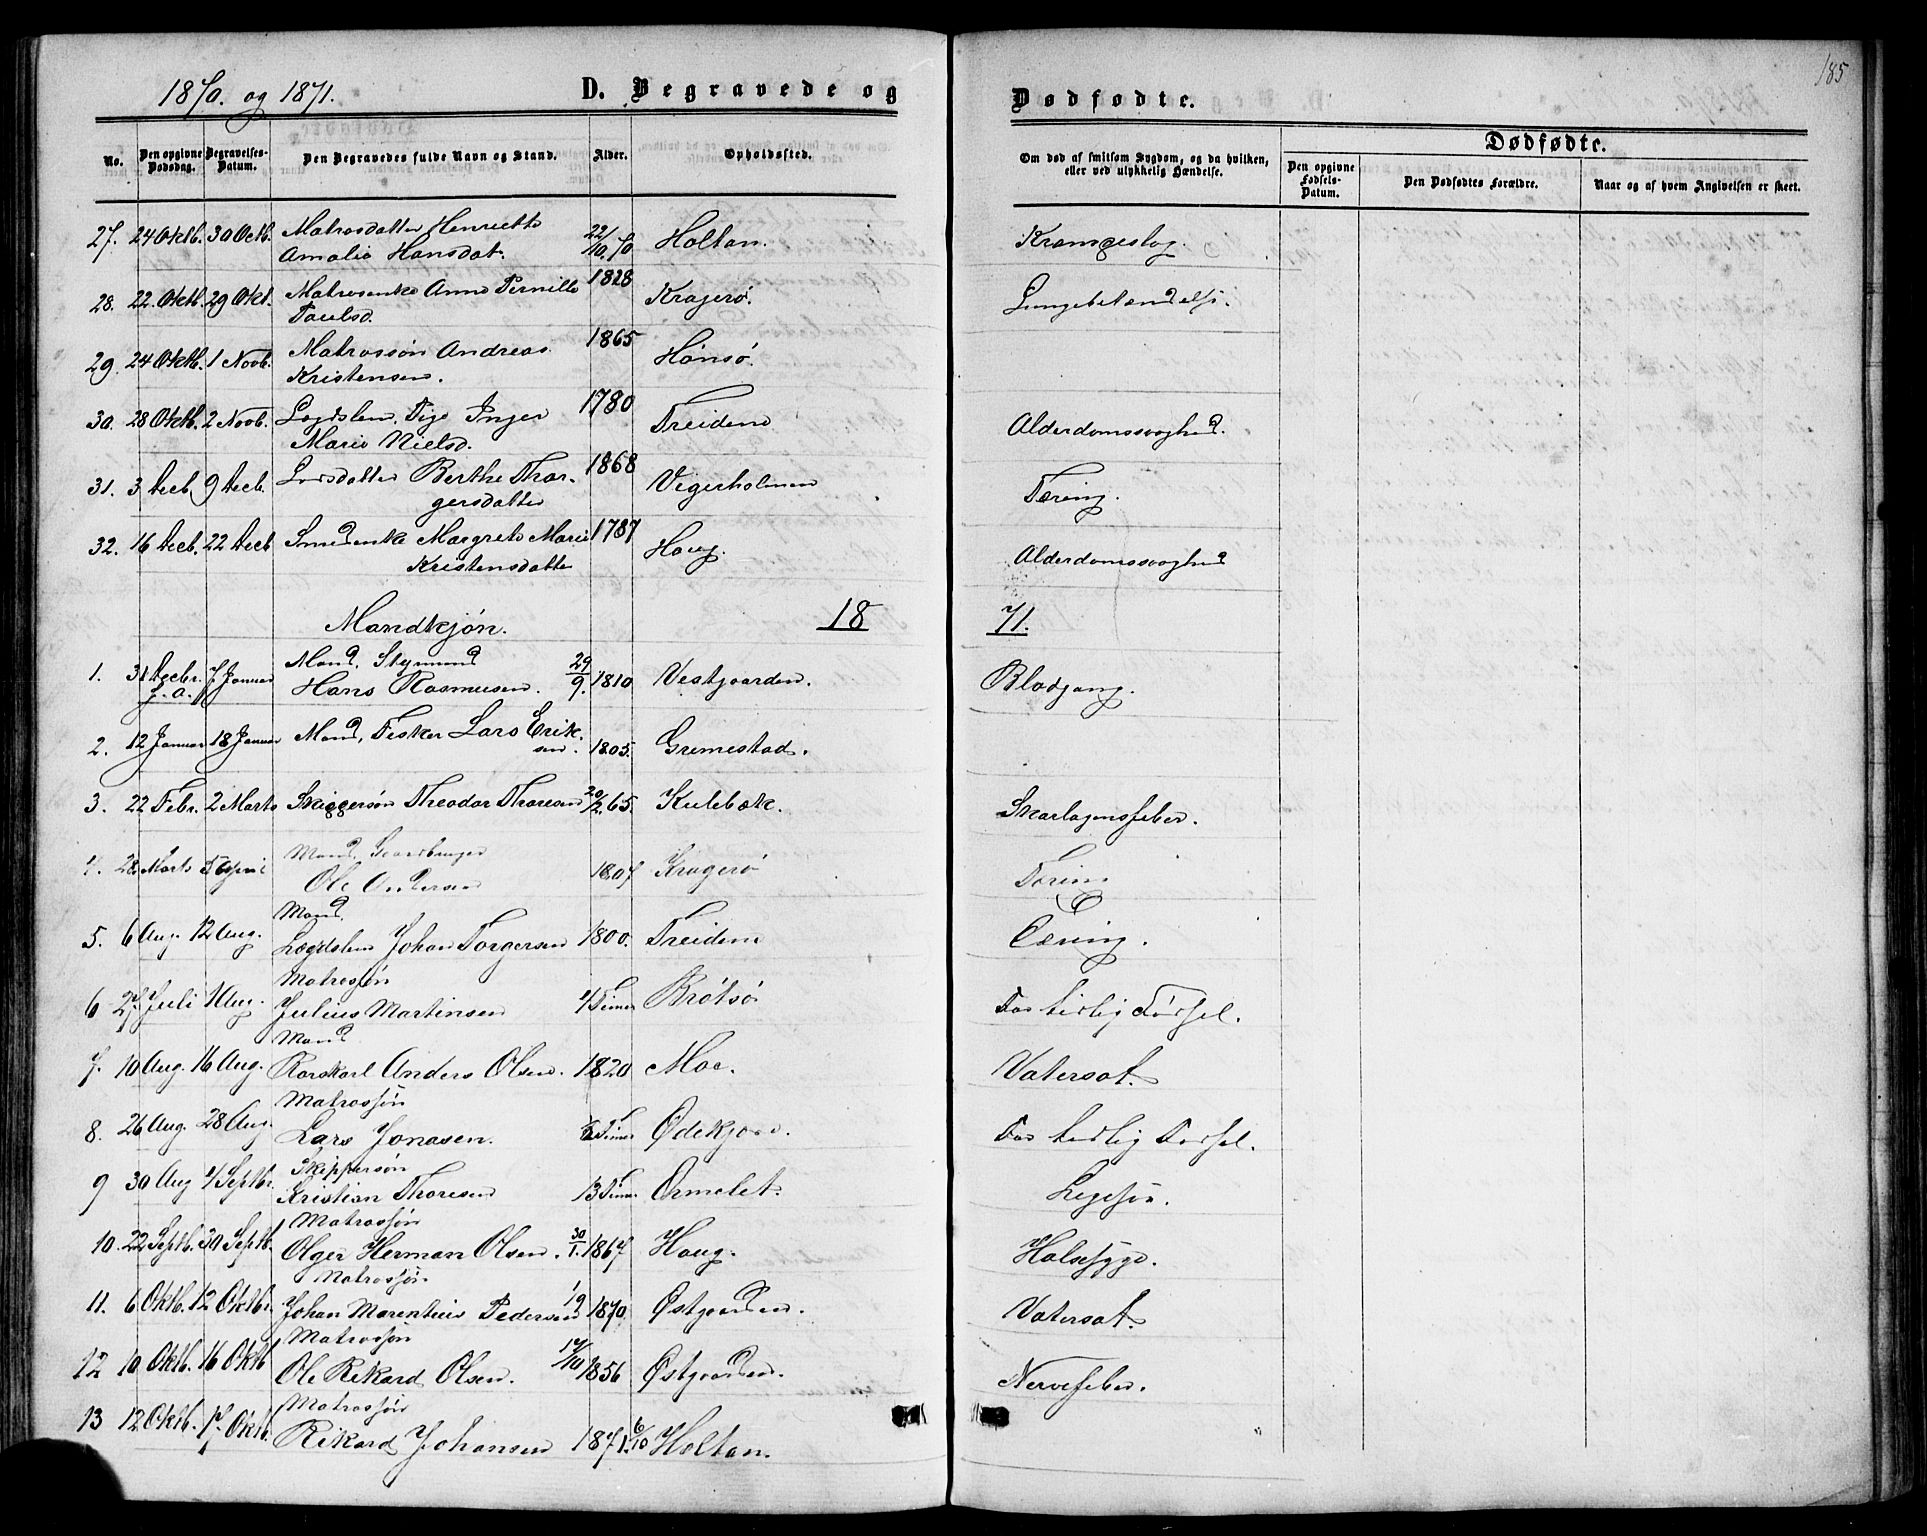 185
1870. og 1871.
D. Begravede og
Dødfødte.
No.
Den opgivne Dødsdag.
Begravelses-Datum.
Den Begravedes fulde Navn og Stand.
Alder.
Opholdssted.
Om død af smitsom Sygdom, og da hvilken, eller ved ulykkelig Hændelse.
Dødfødte.
Den opgivne Fødsels-Datum.
Den Dødfødtes Forældre.
Naar og af hvem Angivelsen er skeet.
27. 24 Oktb. 30 Octb. Matrosdatter Henriette 22/10. 70 Holtan. Krampeslag.
Amalie Hansdat.
28. 22. Oktb. 29 Okt. Matrosenke Anne Pernille 1828 Kragerø. Lungebetændelse.
Paulsd.
29. 24 Oktb. 1 Novb. Matrossøn Andreas 1865 Hønsø.
Kristensen.
30. 28 Oktb. 2 Novb. Lægdslem, Pige Inger 1780 Treidene Alderdomssvaghed.
Marie Nielsd.
31. 3 Decb. 9 Decb. Losdatter Berthe Thor- 1868 Vegerholmen Tæring.
gersdatter
32. 16 Decb. 22 Decb Smedenke Margrete Marie 1787 Haug. Alderdomssvaghed
Kristensdatter
Mandkjøn. 18 71.
1. 31 Decbr. 7 Januar Mand, Styrmand 29/9. 1810 Vestgaarden. Blodgang.
f. a. Hans Rasmusen.
2. 12 Januar 18 Januar Mand, Fisker Lars Erik- 1805. Grimestad.
sen.
3. 22 Febr. 2 Marts Skippersøn Theodor Thoresen 20/2. 65. Kulebæk. Skarlagensfeber.
4. 28. Marts 5 April Mand, Gaardbruger 1807 Kragerø Tæring
Ole Andersen
Mand
5. 6 Aug. 12 Aug. Lægdslem Johan Torgersen 1800. Treidene Tæring.
Matrossøn
6 27 Juli 1 Aug. Julius Martinsen 4 Timer Brøtsø For tidlig Fødsel.
Mand
7. 10 Aug. 16 Aug. Karskarl Anders Olsen. 1820 Moe. Vatersot.
Matrossøn
8. 26 Aug. 28 Aug. Lars Jonasen. Timer Ødekjære. For tidlig Fødsel.
Skippersøn
9 30 Aug 4 Septbr. Kristian Thoresen 13 Timer Ormelet.
Matrossøn
10. 22 Septb. 30 Septb. Olger Herman Olsen. 30/1. 1867 Haug. Halsesyge.
Matrossøn
11. 6 Oktb. 12 Oktbr. Johan Marentius Pedersen 1/9 1870 Østgaarden. Vatersot.
Matrossøn
12 10 Oktb. 16 Oktb Ole Rikard Olsen. 17/10 1856 Østgaarden. Nervefeber.
Matrossøn
13 12 Oktb. 17. Oktb. Rikard Johansen 1871. 6/10 Holtan.